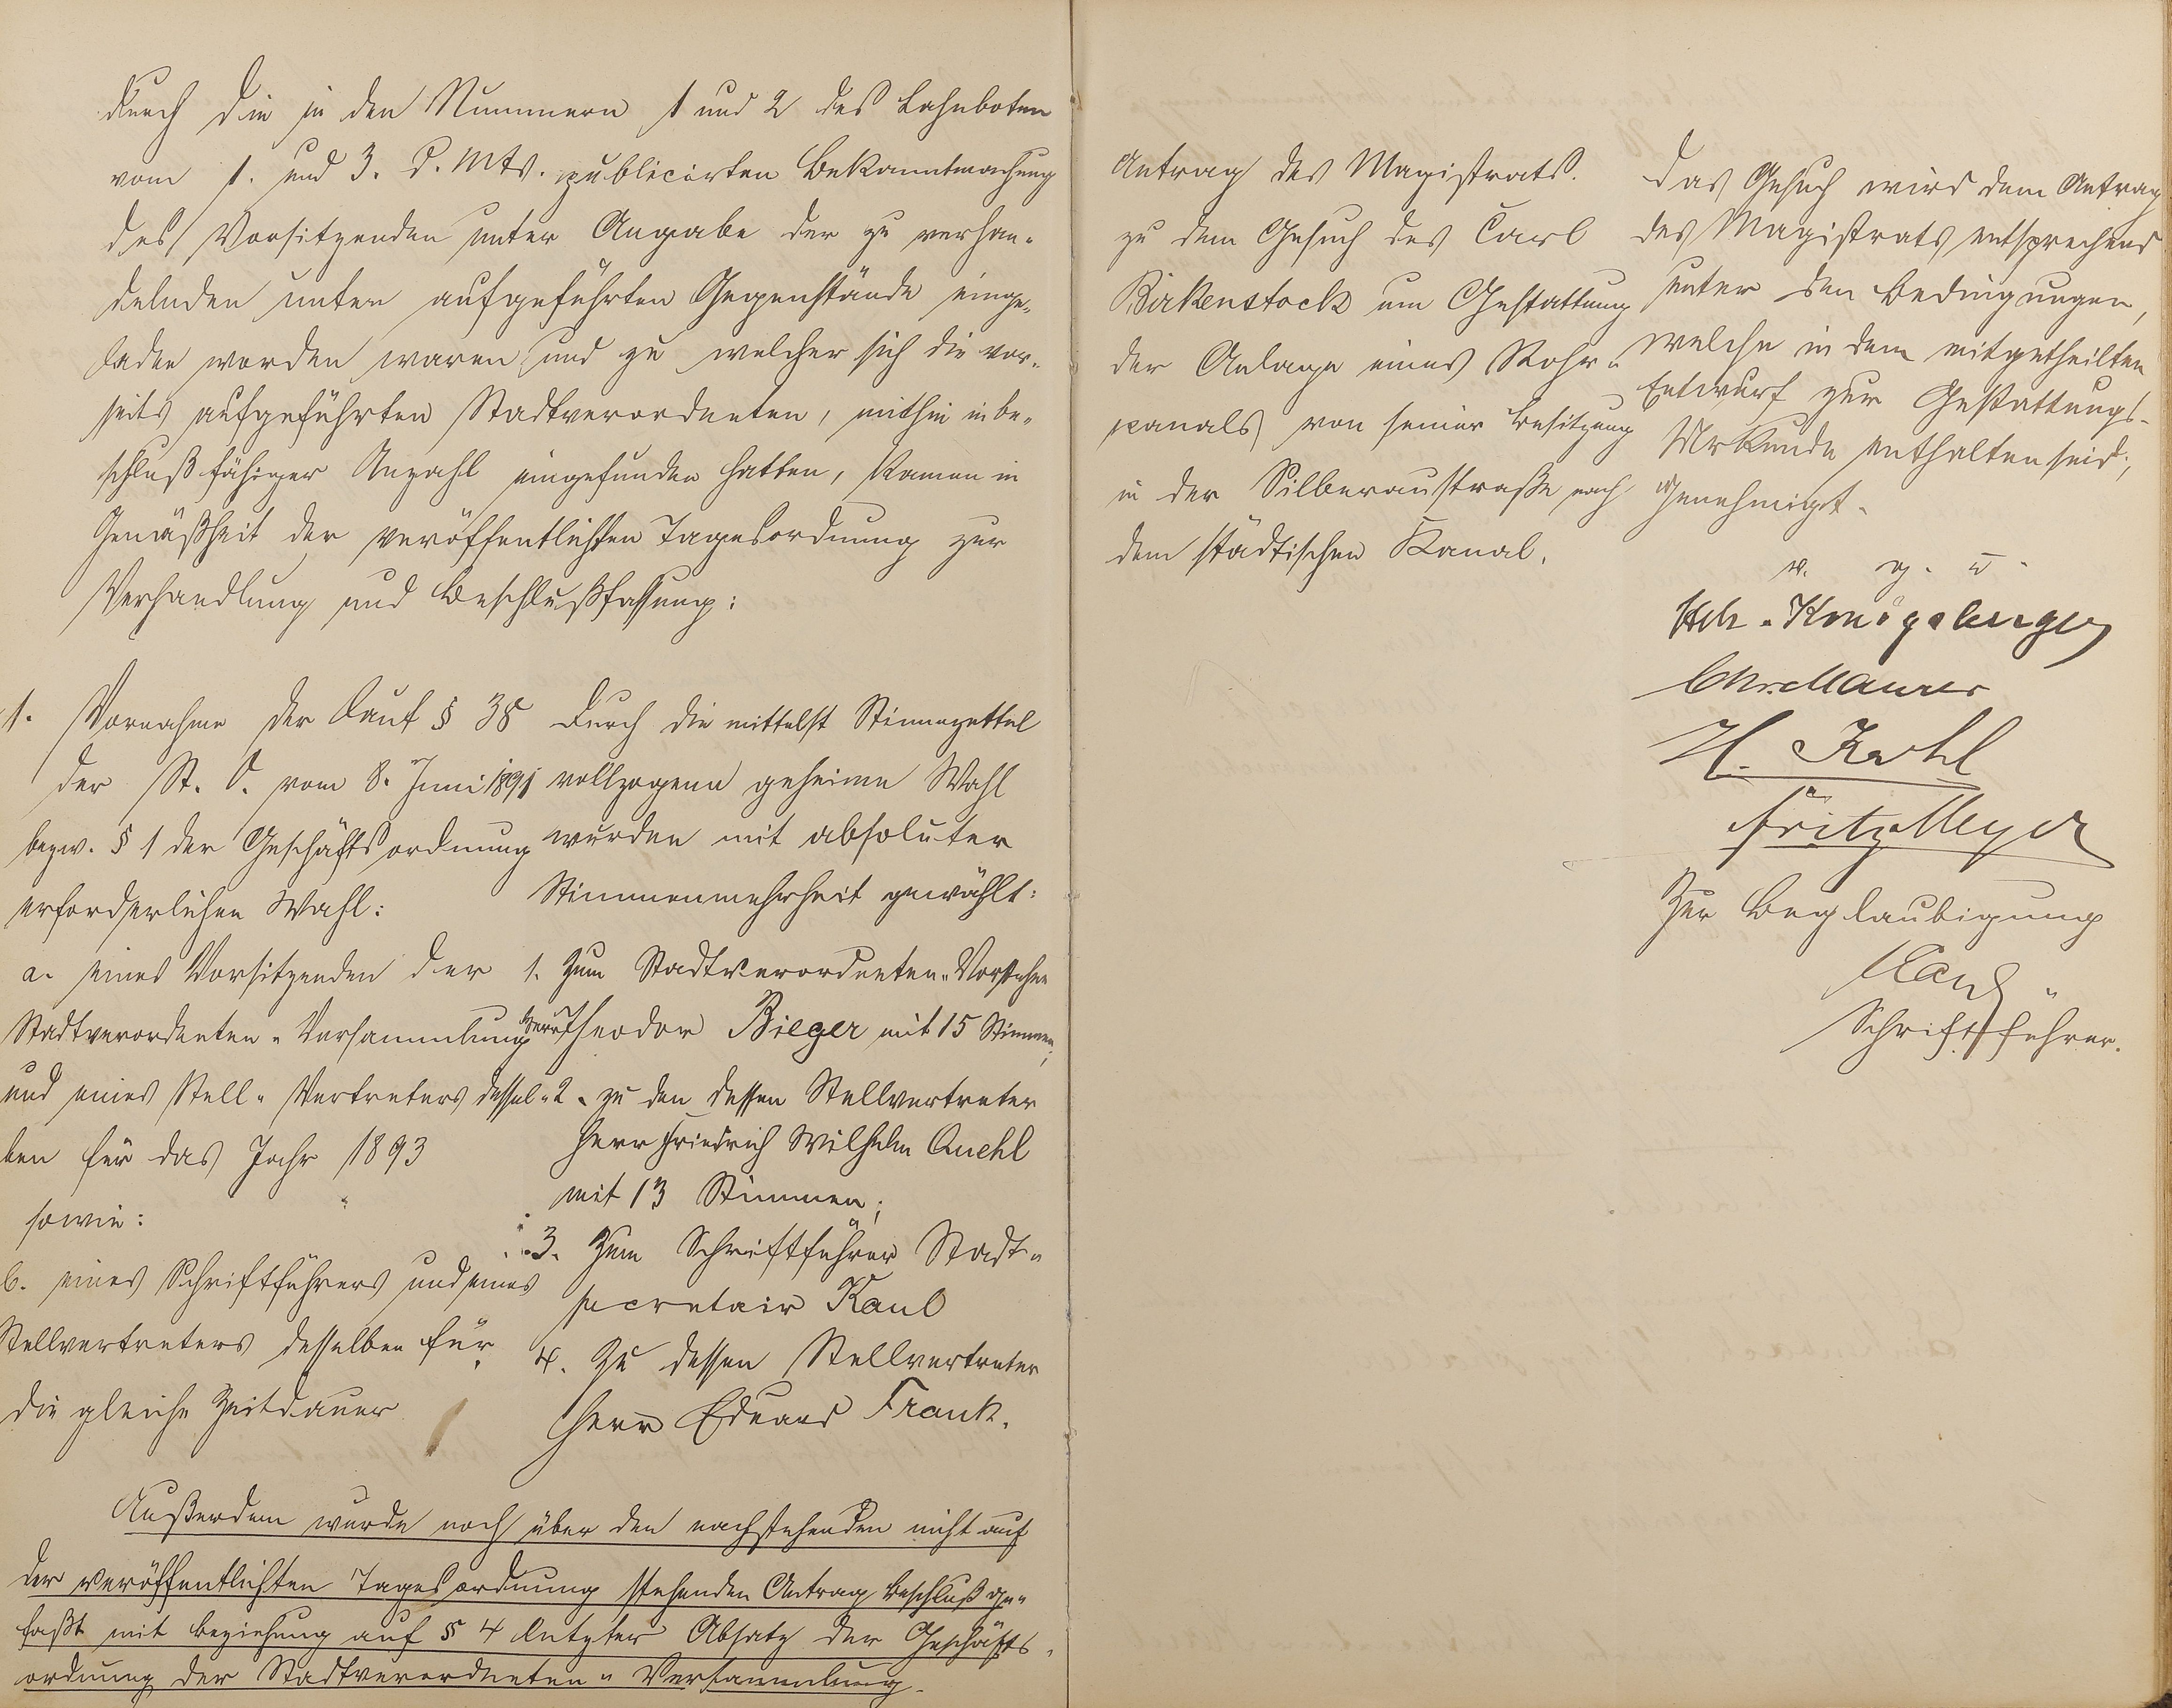 durch die in den Nummern 1 und 2 des Lahnboten
vom 1. und 3. d. Mts. publicirten Bekanntmachung
des Vorsitzenden unter Angabe der zu verhan-
delnden unten aufgeführten Gegenstände einge-
laden worden waren und zu welcher sich die vor-
seits aufgeführten Stadtverordneten, mithin in be-
schlußfähiger Anzahl eingefunden hatten, kamen in
Gemäßheit der veröffentlichten Tagesordnung zur
Verhandlung und Beschlußfassung:
1. Vornahme der laut § 38
der St. O. vom 8. Juni 1891
bezw. § 1 der Geschäftsordnung
erforderlichen Wahl:
a. eines Vorsitzenden der
Stadtverordneten-Versammlung
und eines Stell-Vertreters dessel-
ben für das Jahr 1893
sowie:
b. eines Schriftführers und eines
Stellvertreters desselben für
die gleiche Zeitdauer
Durch die mittelst Stimmzettel
vollzogene geheime Wahl
wurden mit absoluter
Stimmenmehrheit gewählt:
1. Zum Stadtverordneten-Vorsteher
Herr Theodor Bieger mit 15 Stimmen;
2. zu den dessen Stellvertreter
Herr Friedrich Wilhelm Quehl
mit 13 Stimmen;
3. Zum Schriftführer Stadt-
secretair Kaul
4. Zu dessen Stellvertreter
Herr Eduard Frank.
Außerdem wurde noch über den nachstehenden nicht auf
der veröffentlichten Tagesordnung stehenden Antrag Beschluß ge-
faßt mit Beziehung auf § 4 letzter Absatz der Geschäfts-
ordnung der Stadtverordneten-Versammlung.
Antrag des Magistrats.
zu dem Gesuch des Carl
Birkenstock um Gestattung
der Anlage eines Rohr-
kanals von seiner Besitzung
in der Silberaustraße nach
dem städtischen Kanal.
Das Gesuch wird dem Antrag
des Magistrats entsprechend
unter den Bedingungen,
welche in dem mitgetheilten
Entwurf zur Gestattungs-
Urkunde enthalten sind,
genehmigt.
v. g. u.
Hch. Königsberger
Chr. Maurer
H. Kohl
Fritz Meyer
Zur Beglaubigung
Kaul
Schriftführer.